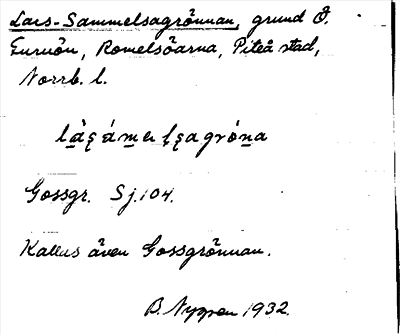 Lars-Sammelsagrönnan, grund Ö.
Euruön, Romelsöarna, Piteå stad,
Norrb. l.
Gossgr. Sj. 104.
Kallas även Gossgrönnan.
B. Nygren 1932.